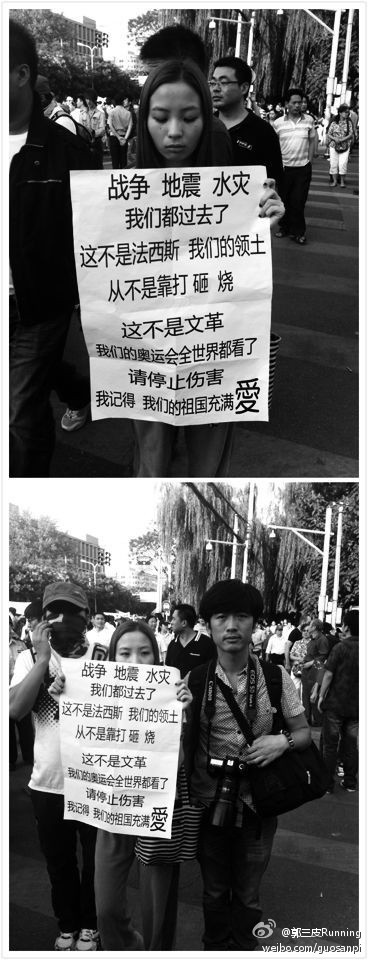 战争 地震 水灾
我们都过去了
这不是法西斯 我们的领土
从不是靠打 砸 烧
这不是文革
我们的奥运会全世界都看了
请停止伤害
我记得 我们的祖国充满愛
战争 地震 水灾
我们都过去了
这不是法西斯 我们的领土
从不是靠打 砸 烧
这不是文革
我们的奥运会全世界都看了
请停止伤害
我记得 我们的祖国充满愛
Canon
@郭三皮Running
weibo.com/guosanpi